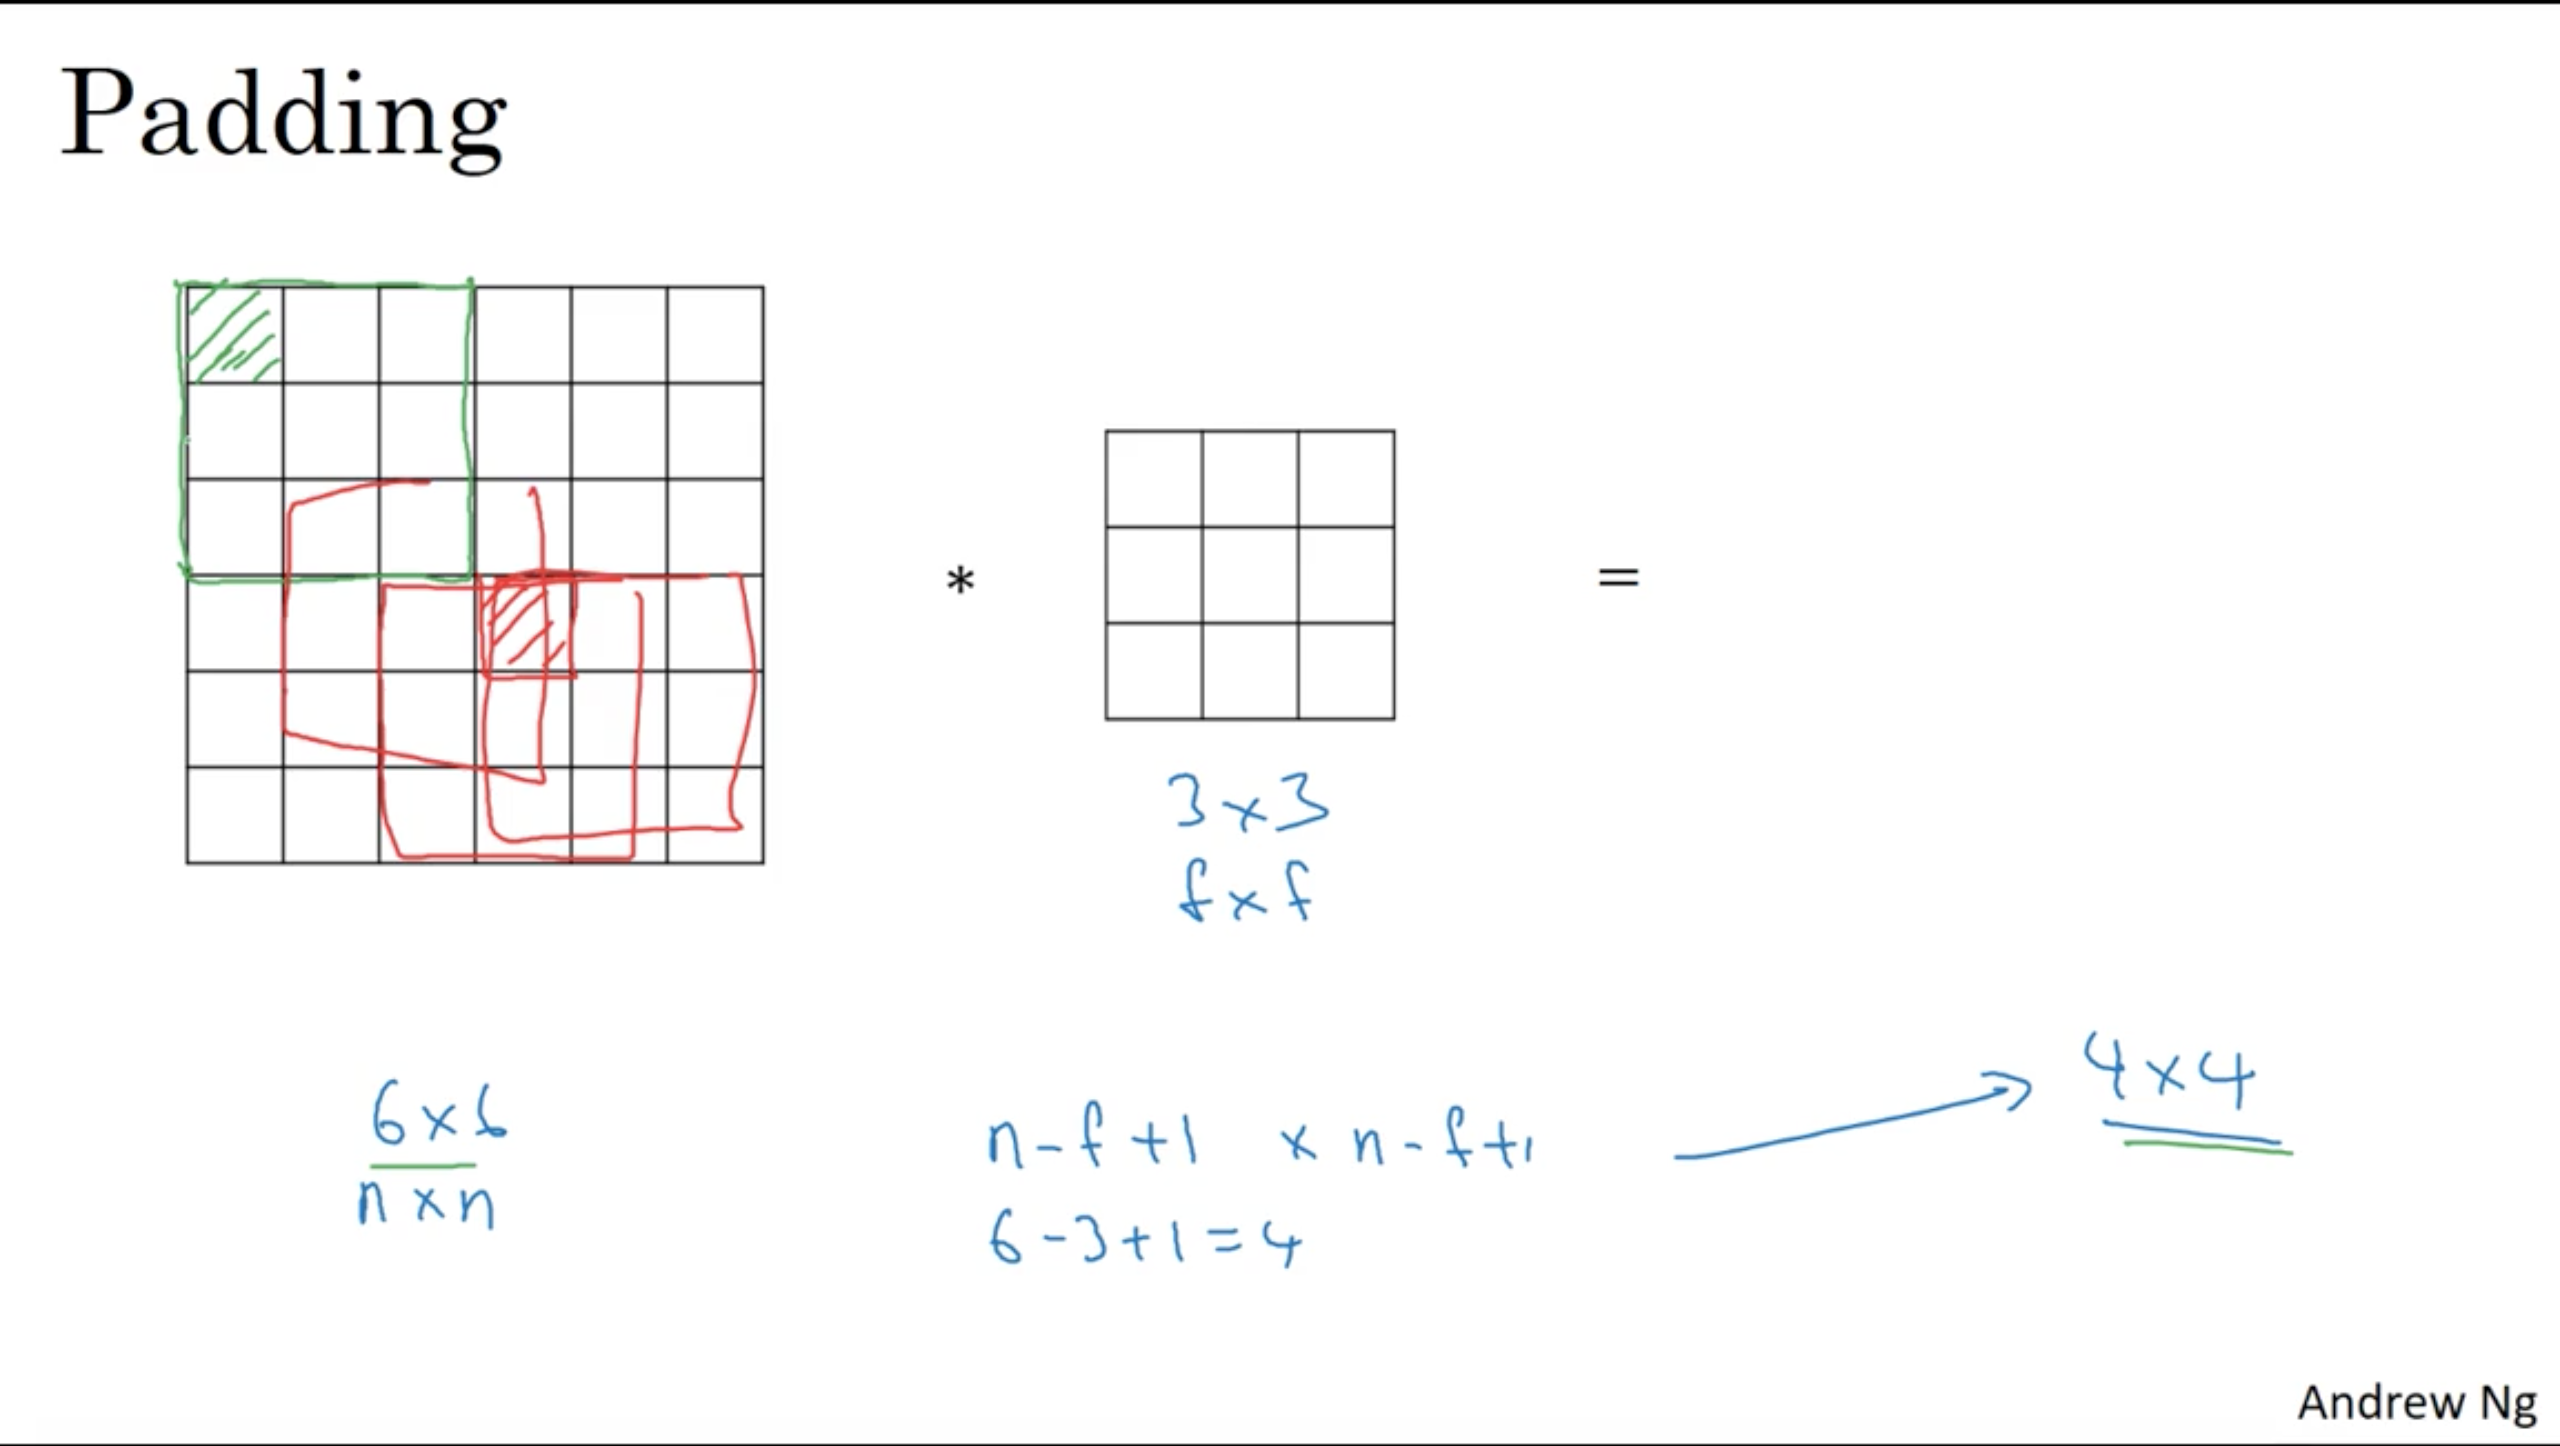 Padding
*
=
3 x 3
f x f
6 x 6
n x n
n - f + 1 x n - f + 1
6 - 3 + 1 = 4
4 x 4
Andrew Ng